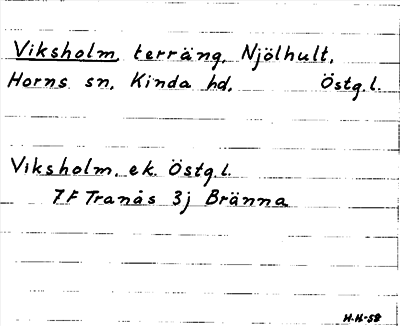 Viksholm, terräng, Njölhult,
Horns sn, Kinda hd, Östg.l.
Viksholm. ek. Östg.l.
7F Tranås 3j Bränna
H.H-58